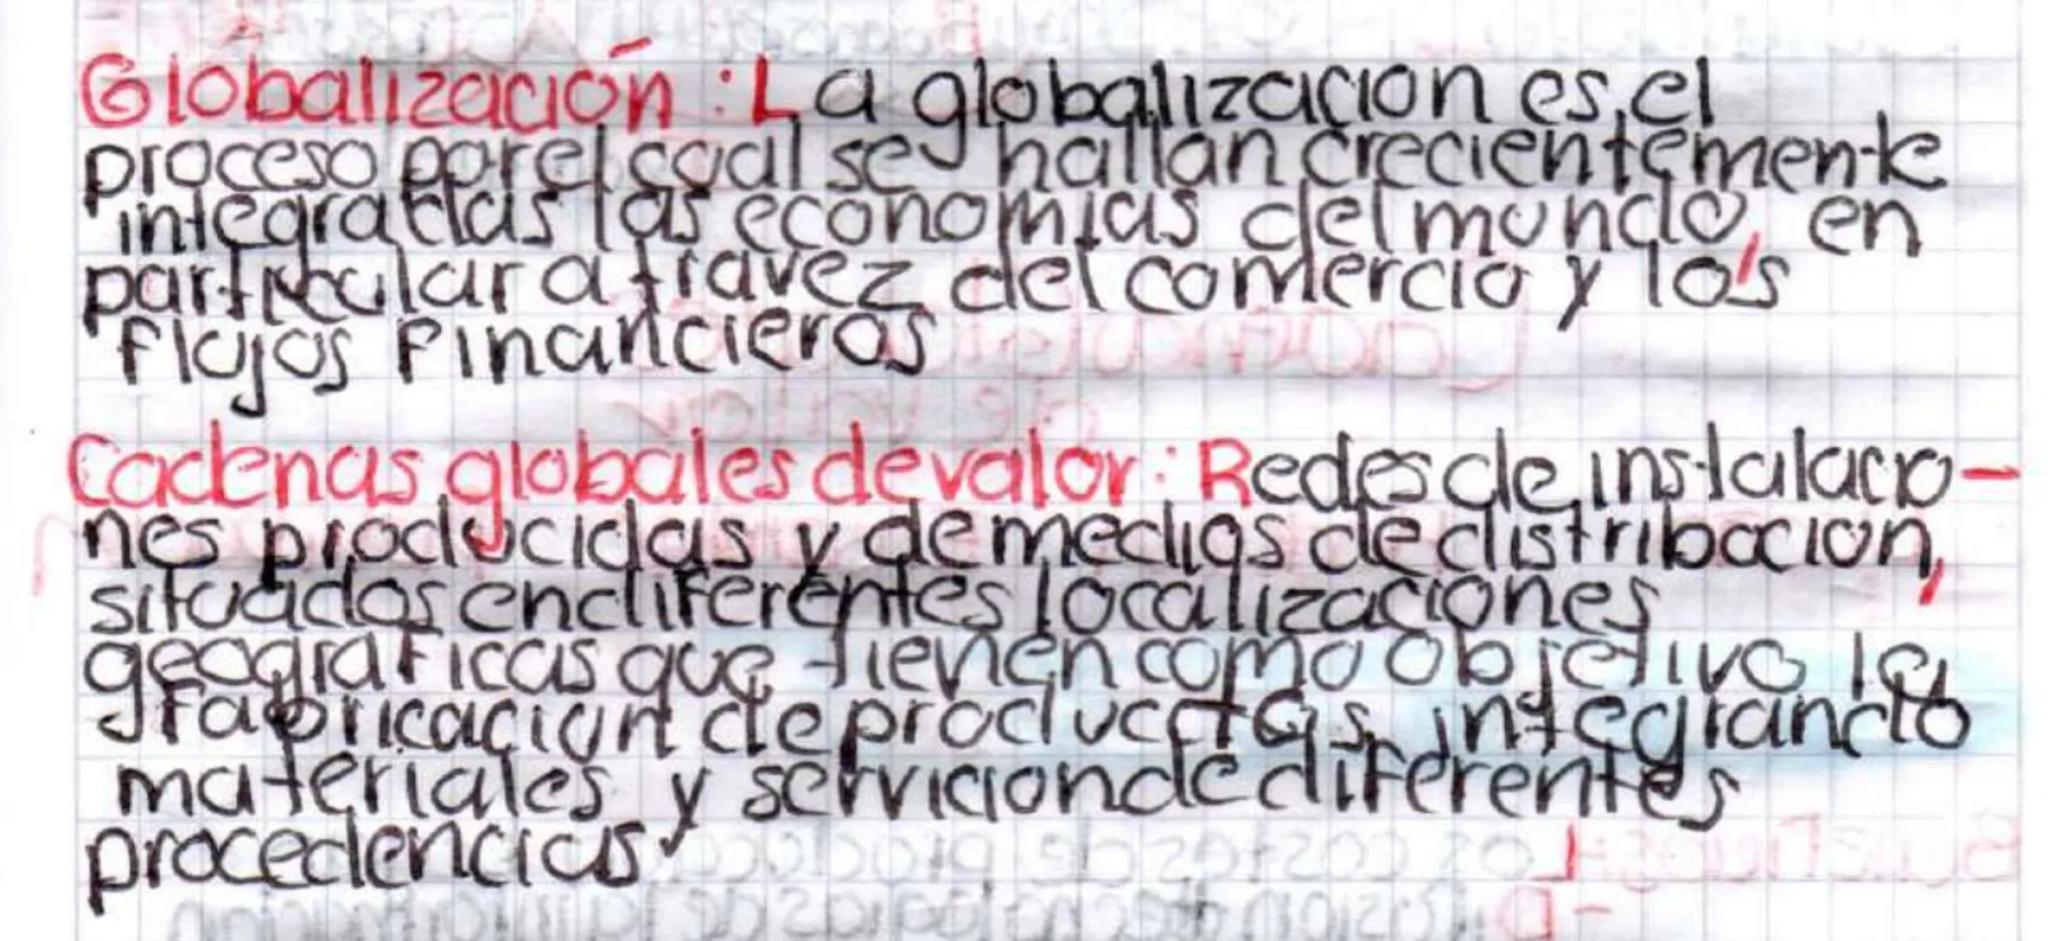 Globalización : La globalizacion es el
proceso por el cual se hallan crecientemente
integradas las economias del mundo, en
particular a travez del comercio y los
flujos financieros
Cadenas globales de valor : Redes de instalacio-
nes producidas y de medios de distribucion,
situados en diferentes localizaciones
geograficas que tienen como objetivo la
fabricacion de productos, integrando
materiales y servicion de diferentes
procedencias